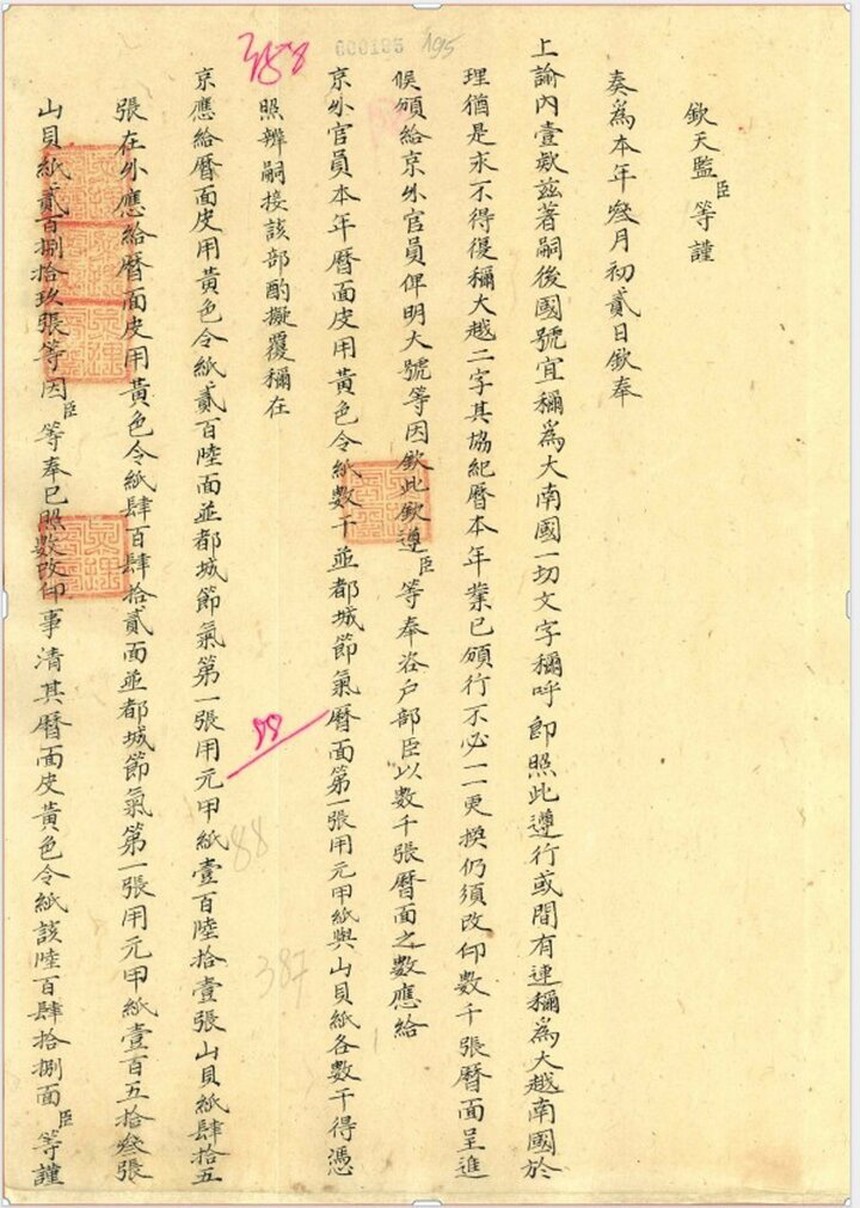 000195 195
388
欽天監臣等謹
奏為本年叄月初貳日欽奉
上諭內壹欵茲著嗣後國號宜稱為大南國一切文字稱呼即照此遵行或間有連稱為大越南國於
理猶是求不得復稱大越二字其協紀曆本年業已頒行不必一一更換仍須改印數千張曆面呈進
候頒給京外官員俾明大號等因欽此欽遵臣等奉咨戶部臣以數千張曆面之數應給
京外官員本年曆面皮用黃色令紙數千並都城節氣曆面第一張用元甲紙與山貝紙各數千得憑
照辨嗣接該部酌擬覆稱在
京應給曆面皮用黃色令紙貳百陸面並都城節氣第一張用元甲紙壹百陸拾壹張山貝紙肆拾五
張在外應給曆面皮用黃色令紙肆百肆拾貳面並都城節氣第一張用元甲紙壹百五拾叄張
山貝紙貳百捌拾玖張等因臣等奉已照數改印事清其曆面皮黃色令紙該陸百肆拾捌面臣等謹
88
387